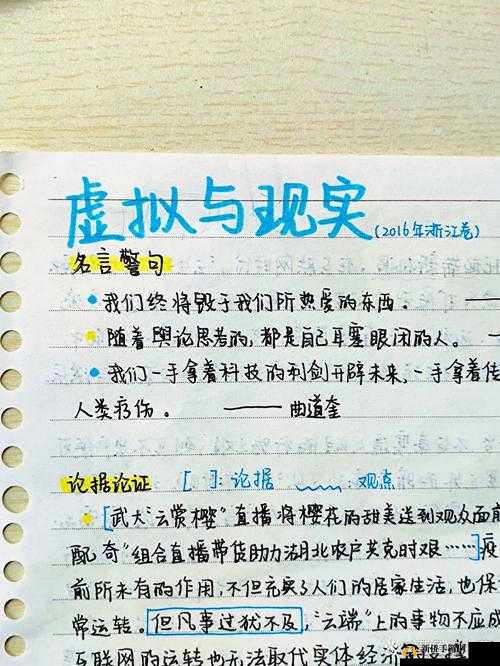 虚拟与现实(2016年浙江卷)
名言警句
我们终将毁于我们所热爱的东西。 —
随着舆论思考的,都是自己耳塞眼闭的人。 —
我们一手拿着科技的利剑开辟未来,一手拿着
人类疗伤。 —— 曲道奎
论据论证 [ ]:论据 ﹏﹏:观点
[武大“云赏樱”直播将樱花的甜美送到观众面前
配奇”组合直播带货助力湖北农户共克时艰……]疫
前所未有的作用,不但充实了人们的居家生活,也保
常运转。但凡事过犹不及,“云端”上的事物不应成
互联网的运转也无法取代实体经济